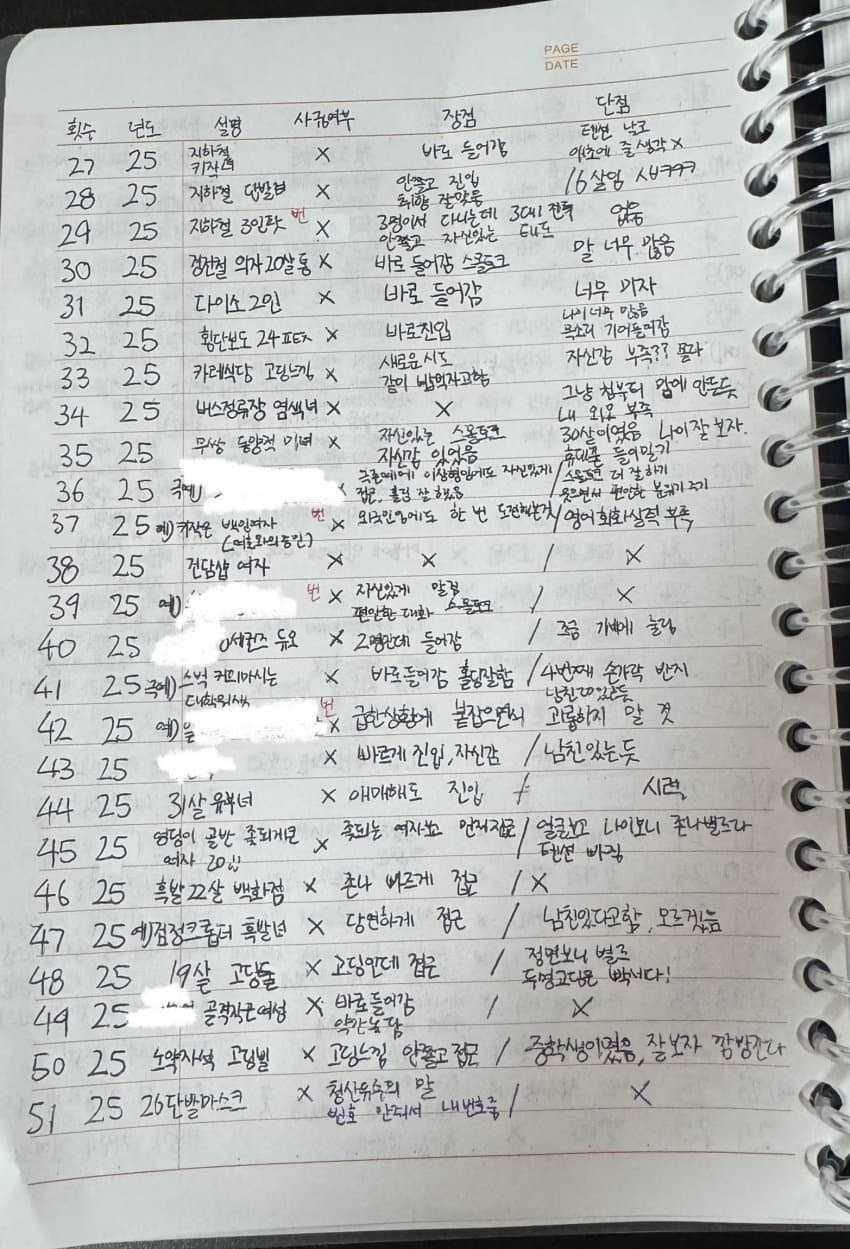 PAGE
DATE
횟수 년도 설명 사귐여부 장점 단점
27 25 지하철 키작녀 X 바로 들어감 텐션 낮고 애초에 줄생각 X
28 25 지하철 단발녀 X 안쫄고 진입 취향 잘맞음 16살임 ㅅㅂㅋㅋㅋ
29 25 지하철 3인팟 번 X 3명이서 다니는데 3대1 전투 안쫄고 자신있는 태도 없음
30 25 경전철 의자 20살 통 X 바로 들어감 스몰토크 말 너무 많음
31 25 다이소 2인 X 바로 들어감 너무 미자
32 25 횡단보도 24 X 바로진입 나이너무 많음 목소리 기어들어감
33 25 카레식당 고딩느낌 X 새로운시도 같이 밥먹자고함 자신감 부족?? 몰라
34 25 버스정류장 염색녀 X X 그냥 첨부터 맘에 안든듯 내 외모 부족
35 25 무쌍 동양적 미녀 X 자신있는 스몰토크 자신감 있었음 30살이였음 나이잘보자. 휴대폰 들이밀기
36 25 극예) X 극존예에 이상형임에도 자신있게 접근, 홀딩 잘했음 / 스몰토크 더 잘하기 웃으면서 편안한 분위기 주기
37 25 예) 키작은 백인여자 번 X 외국인임에도 한 번 도전해본것 / 영어회화실력 부족
38 25 건담샵 여자 X X / X
39 25 예) 번 X 자신있게 말검 편안한 대화 스몰토크 / X
40 25 듀오 X 2명인데 들어감 / 조금 기빡에 눌림
41 25 극예) 스벅 커피마시는 대학원생 X 바로들어감 홀딩잘함 / 4번째 손가락 반지 남친있는듯
42 25 예) 을 번 X 급한상황에 붙잡으면서 괴롭히지 말 것
43 25 X 빠르게 진입, 자신감 / 남친있는듯
44 25 31살 유부녀 X 애매해도 진입 / 시력
45 25 엉덩이 골반 좆되게큰 여자 20 X 좆되는 여자보고 먼저접근 / 얼굴보고 나이보니 존나별로라 텐션 빠짐
46 25 흑발 22살 백화점 X 존나 빠르게 접근 / X
47 25 예) 검정크롭티 흑발녀 X 당연하게 접근 / 남친있다고함, 모르겠음
48 25 19살 고딩들 X 고딩인데 접근 / 정면보니 별로 두명고딩은 빡세다!
49 25 골격작은여성 X 바로들어감 약간농담 / X
50 25 노약자석 고딩삘 X 고딩느낌 안쫄고접근 / 중학생이였음, 잘보자 깜빵간다
51 25 26단발마스크 X 청산유수의 말 번호 안줘서 내번호줌 / X